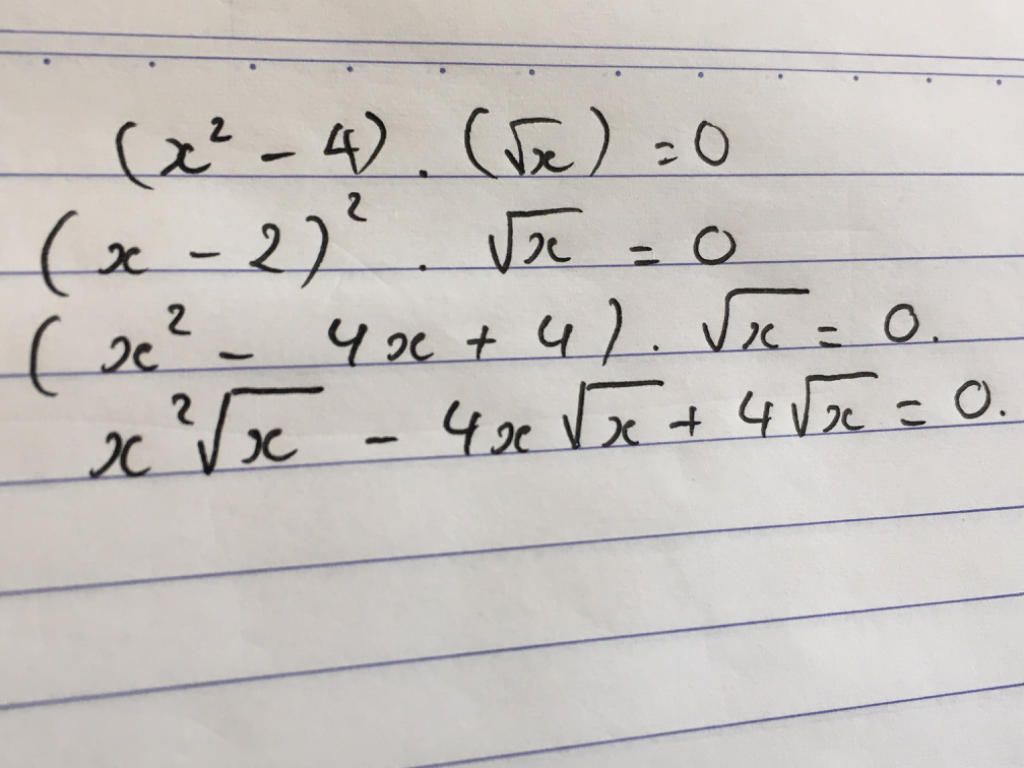 (x² - 4) . (√x) = 0
(x - 2)² . √x = 0
(x² - 4x + 4) . √x = 0.
x²√x - 4x√x + 4√x = 0.